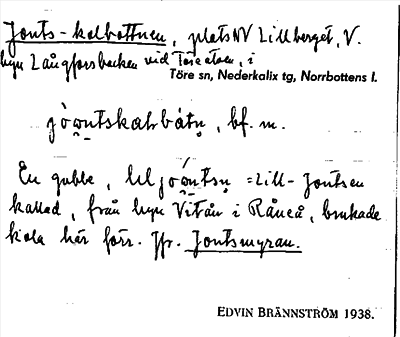 Jonts-kolbottnen, plats NV Lillberget, V.
byn Långforsbacken vid Töreälven, i
Töre sn, Nederkalix tg, Norrbottens l.
bf. m.
En gubbe, =Lill-Jontsen
kallad, från byn Vitån i Råneå, brukade
kola här förr. Jfr. Jontsmyran.
EDVIN BRÄNNSTRÖM 1938.